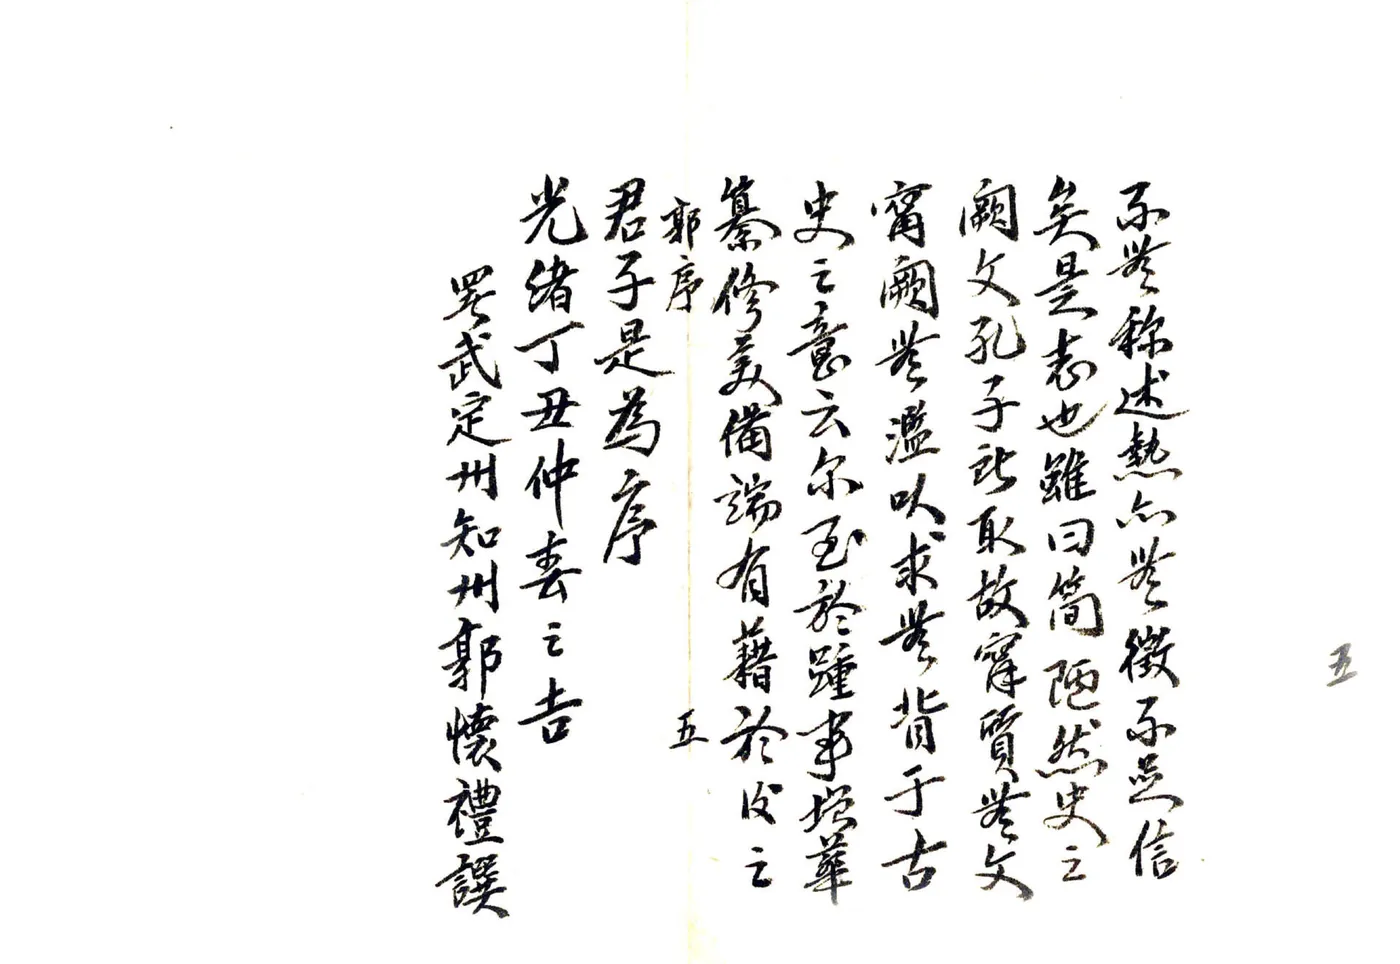 不無稱述熱亦無徵不足信
矣是志也雖曰簡陋然史之
闕文孔子所取故甯質無文
甯闕無濫以求無背于古
史之意云尔至於踵事增華
纂修美備端有藉於后之
郭序
五
君子是為序
光緒丁丑仲春之吉
署武定州知州郭懷禮譔
五